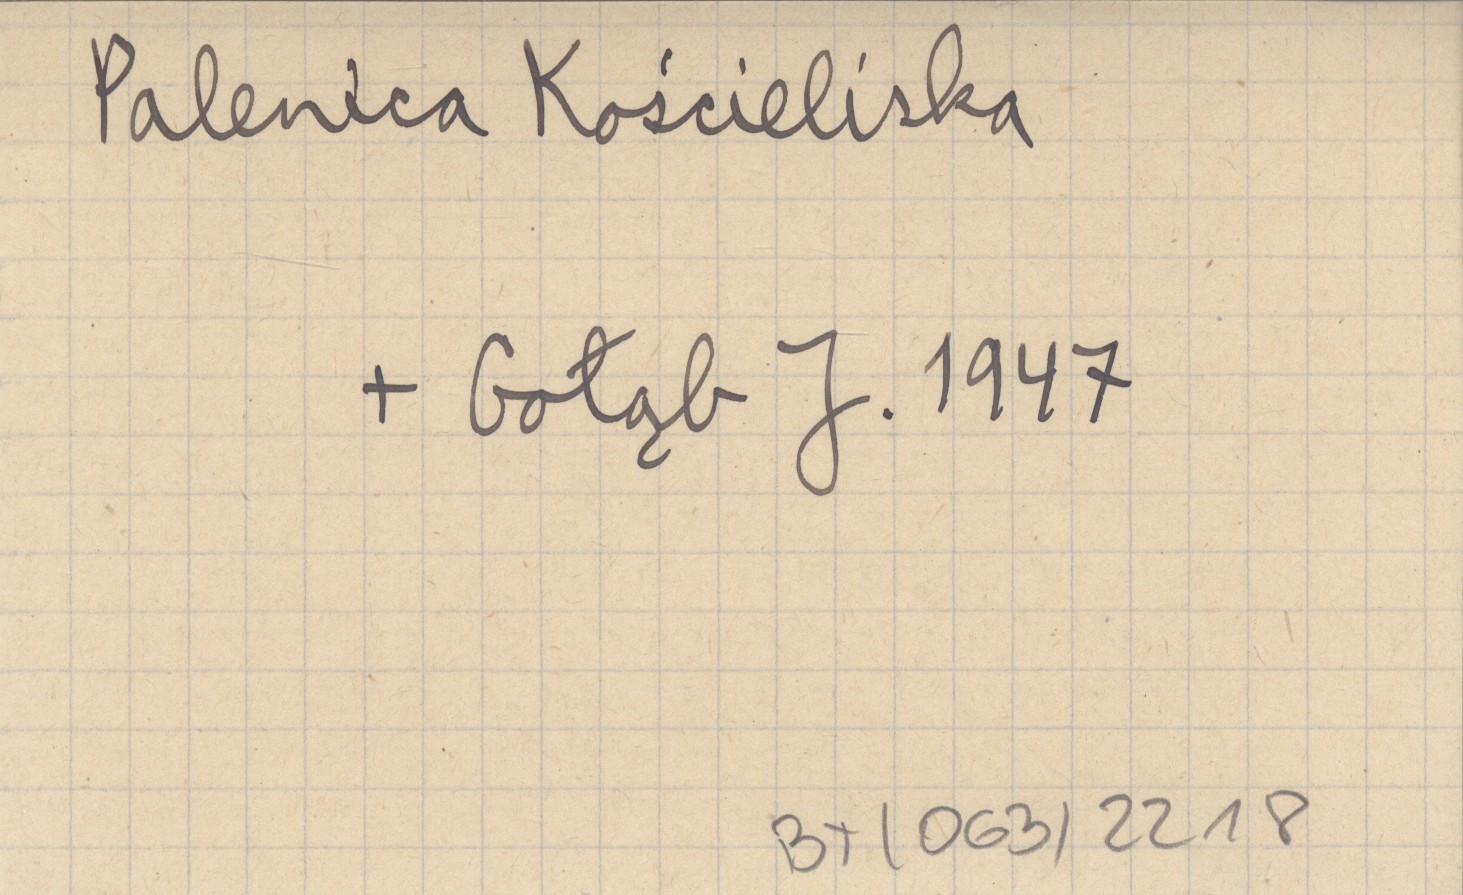 Palenica Kościeliska
+ Gołąb J. 1947
B+(063) 2218